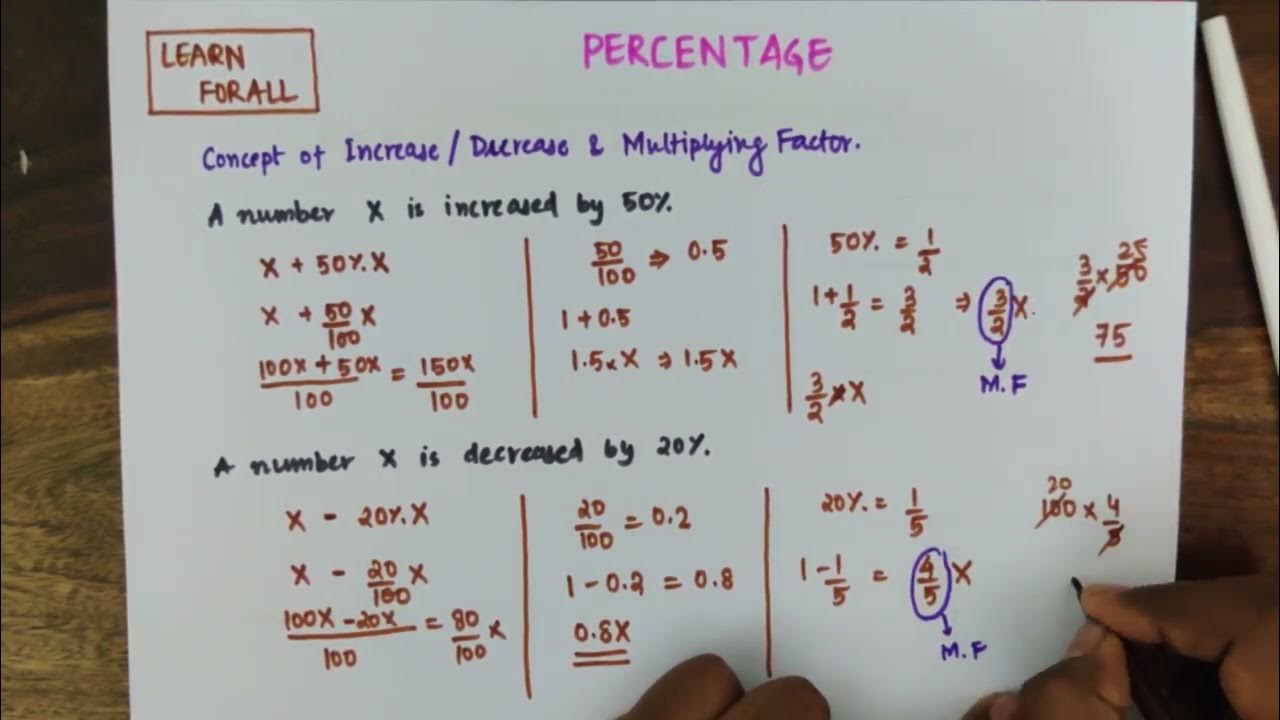 LEARN
FORALL
PERCENTAGE
Concept of Increase / Decrease & Multiplying Factor.
A number X is increased by 50%.
X + 50%.X
X + 50/100 X
100X + 50X / 100 = 150X / 100
50/100 ⇒ 0.5
1 + 0.5
1.5 × X ⇒ 1.5X
50%. = 1/2
1 + 1/2 = 3/2 ⇒ 3/2 X.
M.F
3/2 × X
25
3/2 × 50
75
A number X is decreased by 20%.
X - 20%.X
X - 20/100 X
100X - 20X / 100 = 80/100 X
20/100 = 0.2
1 - 0.2 = 0.8
0.8X
20%. = 1/5
1 - 1/5 = 4/5 X
M.F
20
100 × 4/5